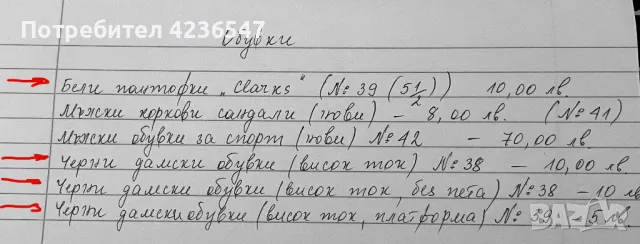 Потребител 4236547
Обувки
Бели пантофки „Clarks" (№ 39 (5 1/2)) 10,00 лв.
Мъжки коркови сандали (нови) – 8,00 лв. (№ 41)
Мъжки обувки за спорт (нови) № 42 – 70,00 лв.
Черни дамски обувки (висок ток) № 38 – 10,00 лв.
Черни дамски обувки (висок ток, без пета) № 38 – 10 лв
Черни дамски обувки (висок ток, платформа) № 39 – 5 лв.
bazar